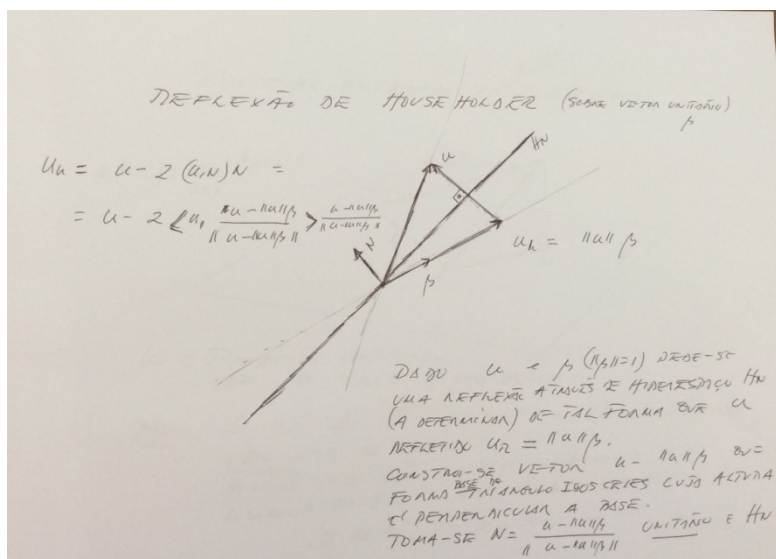 REFLEXÃO DE HOUSEHOLDER (SOBRE VETOR UNITÁRIO) β
u_R = u - 2 ⟨u, N⟩ N =
= u - 2 ⟨u, u - ‖u‖β / ‖u - ‖u‖β‖⟩ u - ‖u‖β / ‖u - ‖u‖β‖
H_N
u
N
β
u_R = ‖u‖ β
DADO u e β (‖β‖=1) PEDE-SE
UMA REFLEXÃO ATRAVÉS HIPERESPAÇO H_N
(A DETERMINAR) DE TAL FORMA QUE u
REFLETIDO u_R = ‖u‖β.
CONSTROI-SE VETOR u - ‖u‖β QUE
FORMA BASE DE TRIÂNGULO ISOSCELES CUJA ALTURA
É PERPENDICULAR A BASE.
TOMA-SE N = u - ‖u‖β / ‖u - ‖u‖β‖ UNITÁRIO E H_N